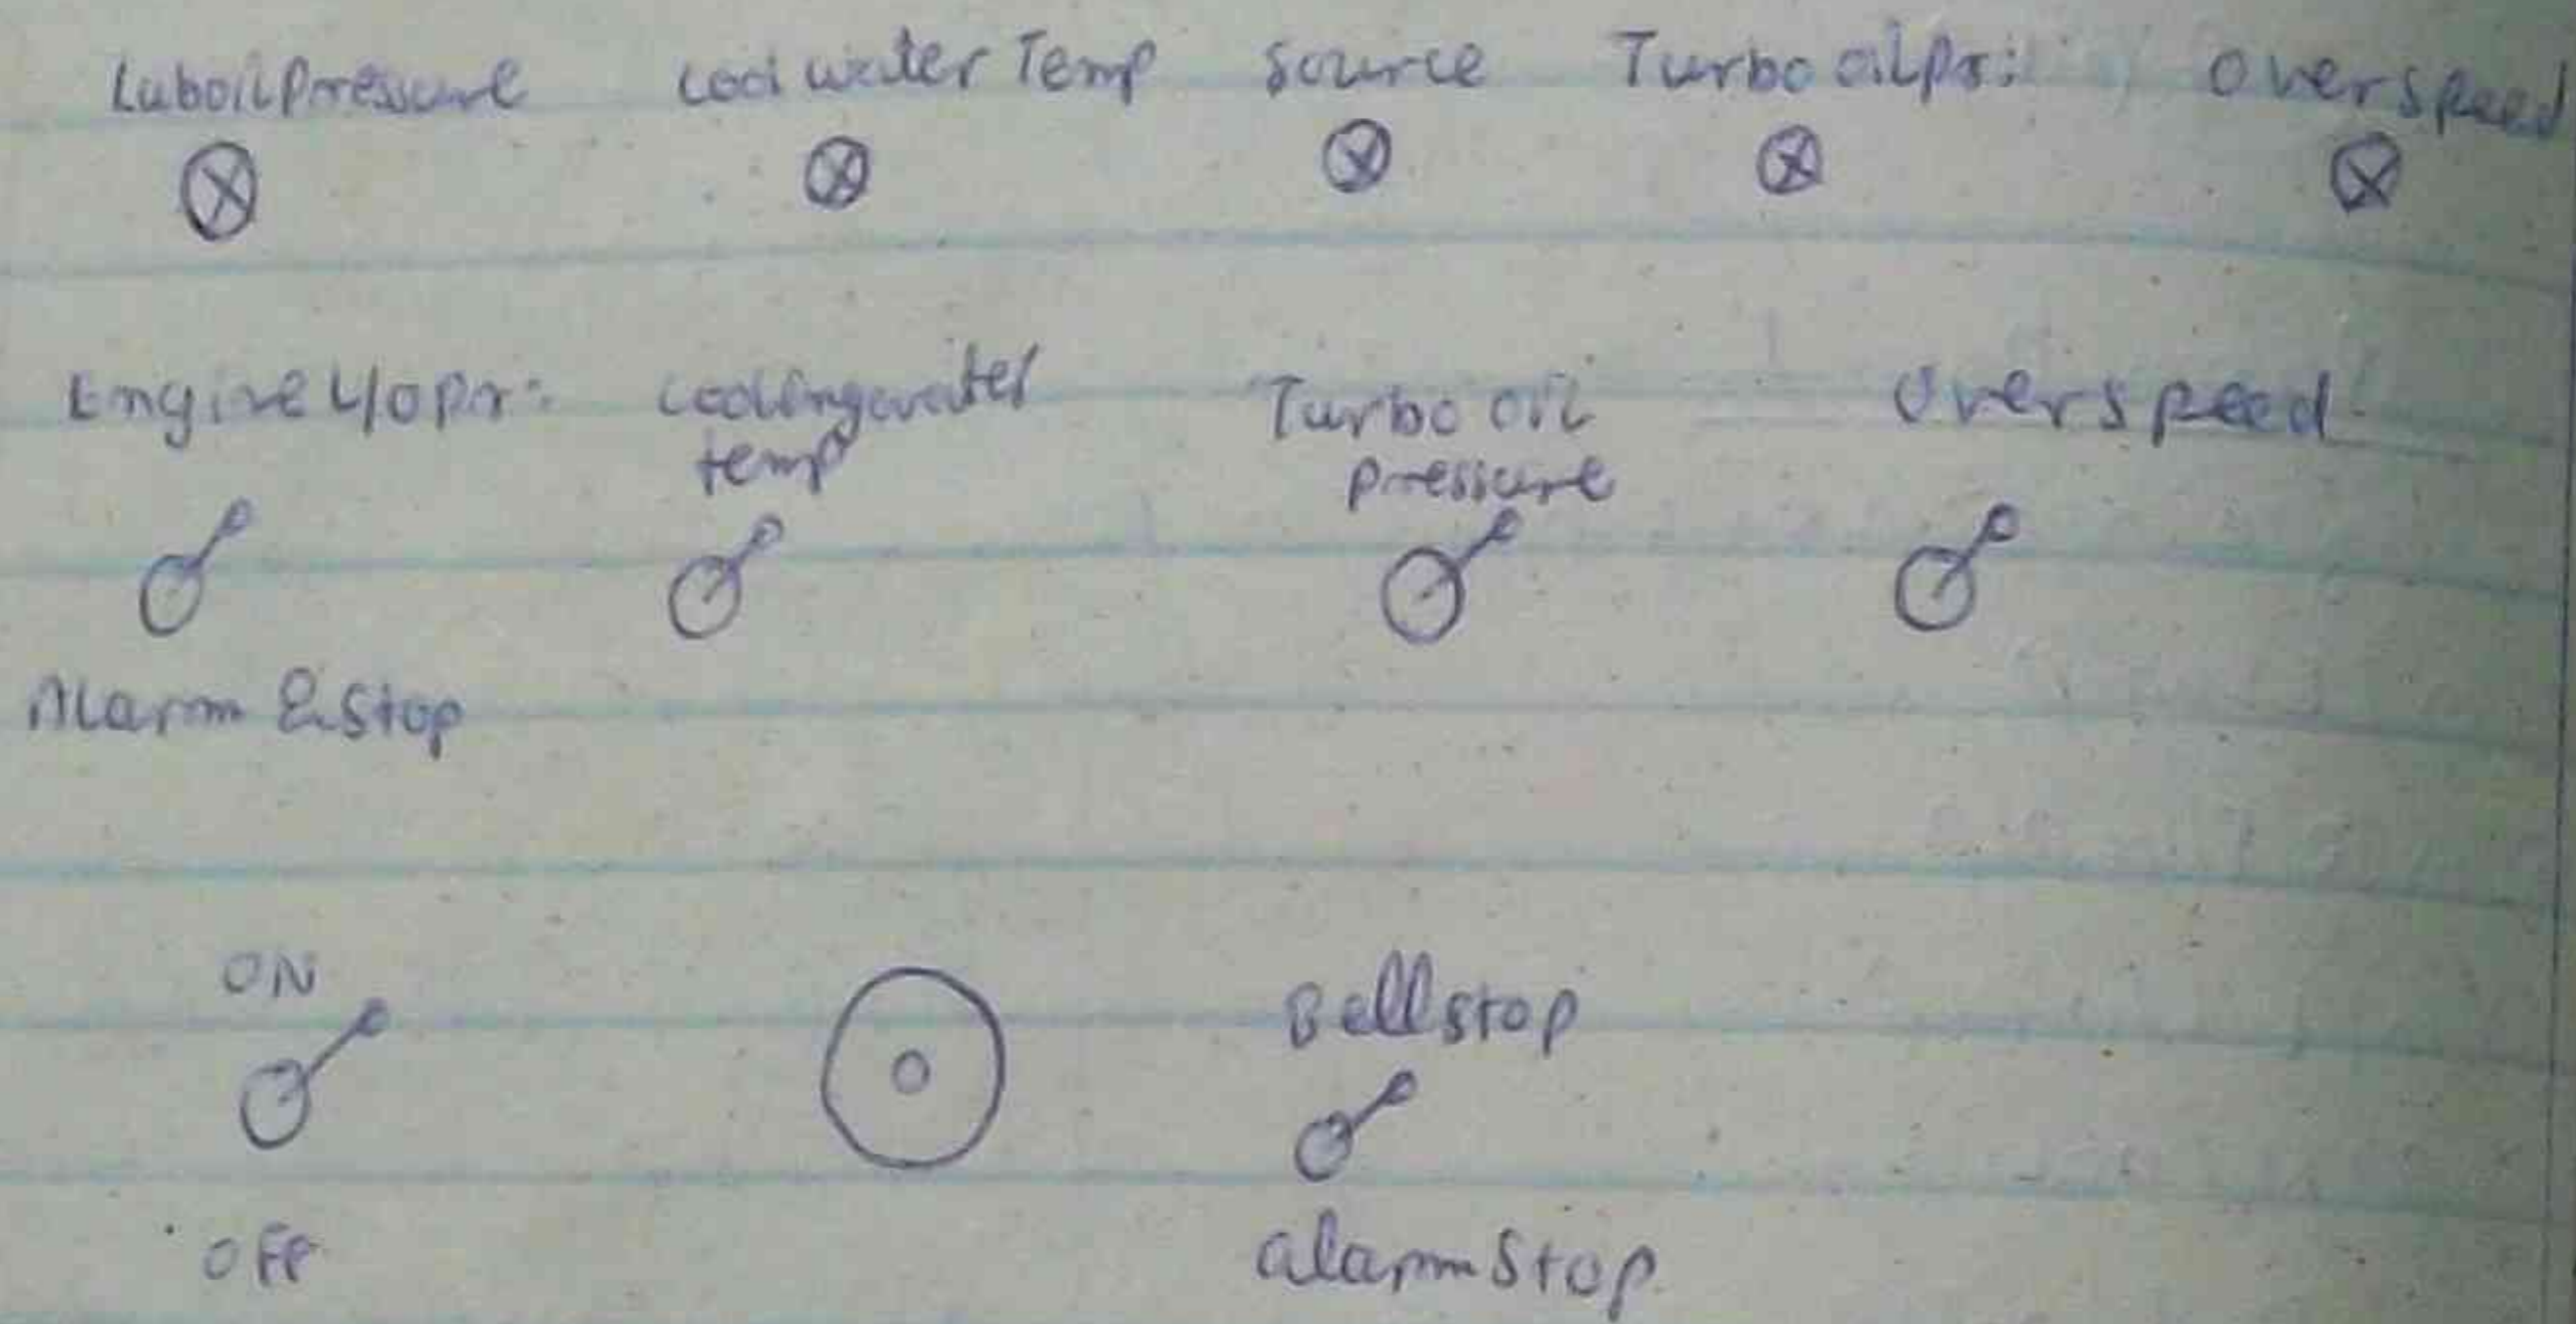 Luboil Pressure Cool water Temp Source Turbo oil pr: Overspeed
Engine L/o pr: Coolingwater Turbo oil Overspeed
temp pressure
Alarm & Stop
ON
Bell stop
OFF
alarm Stop